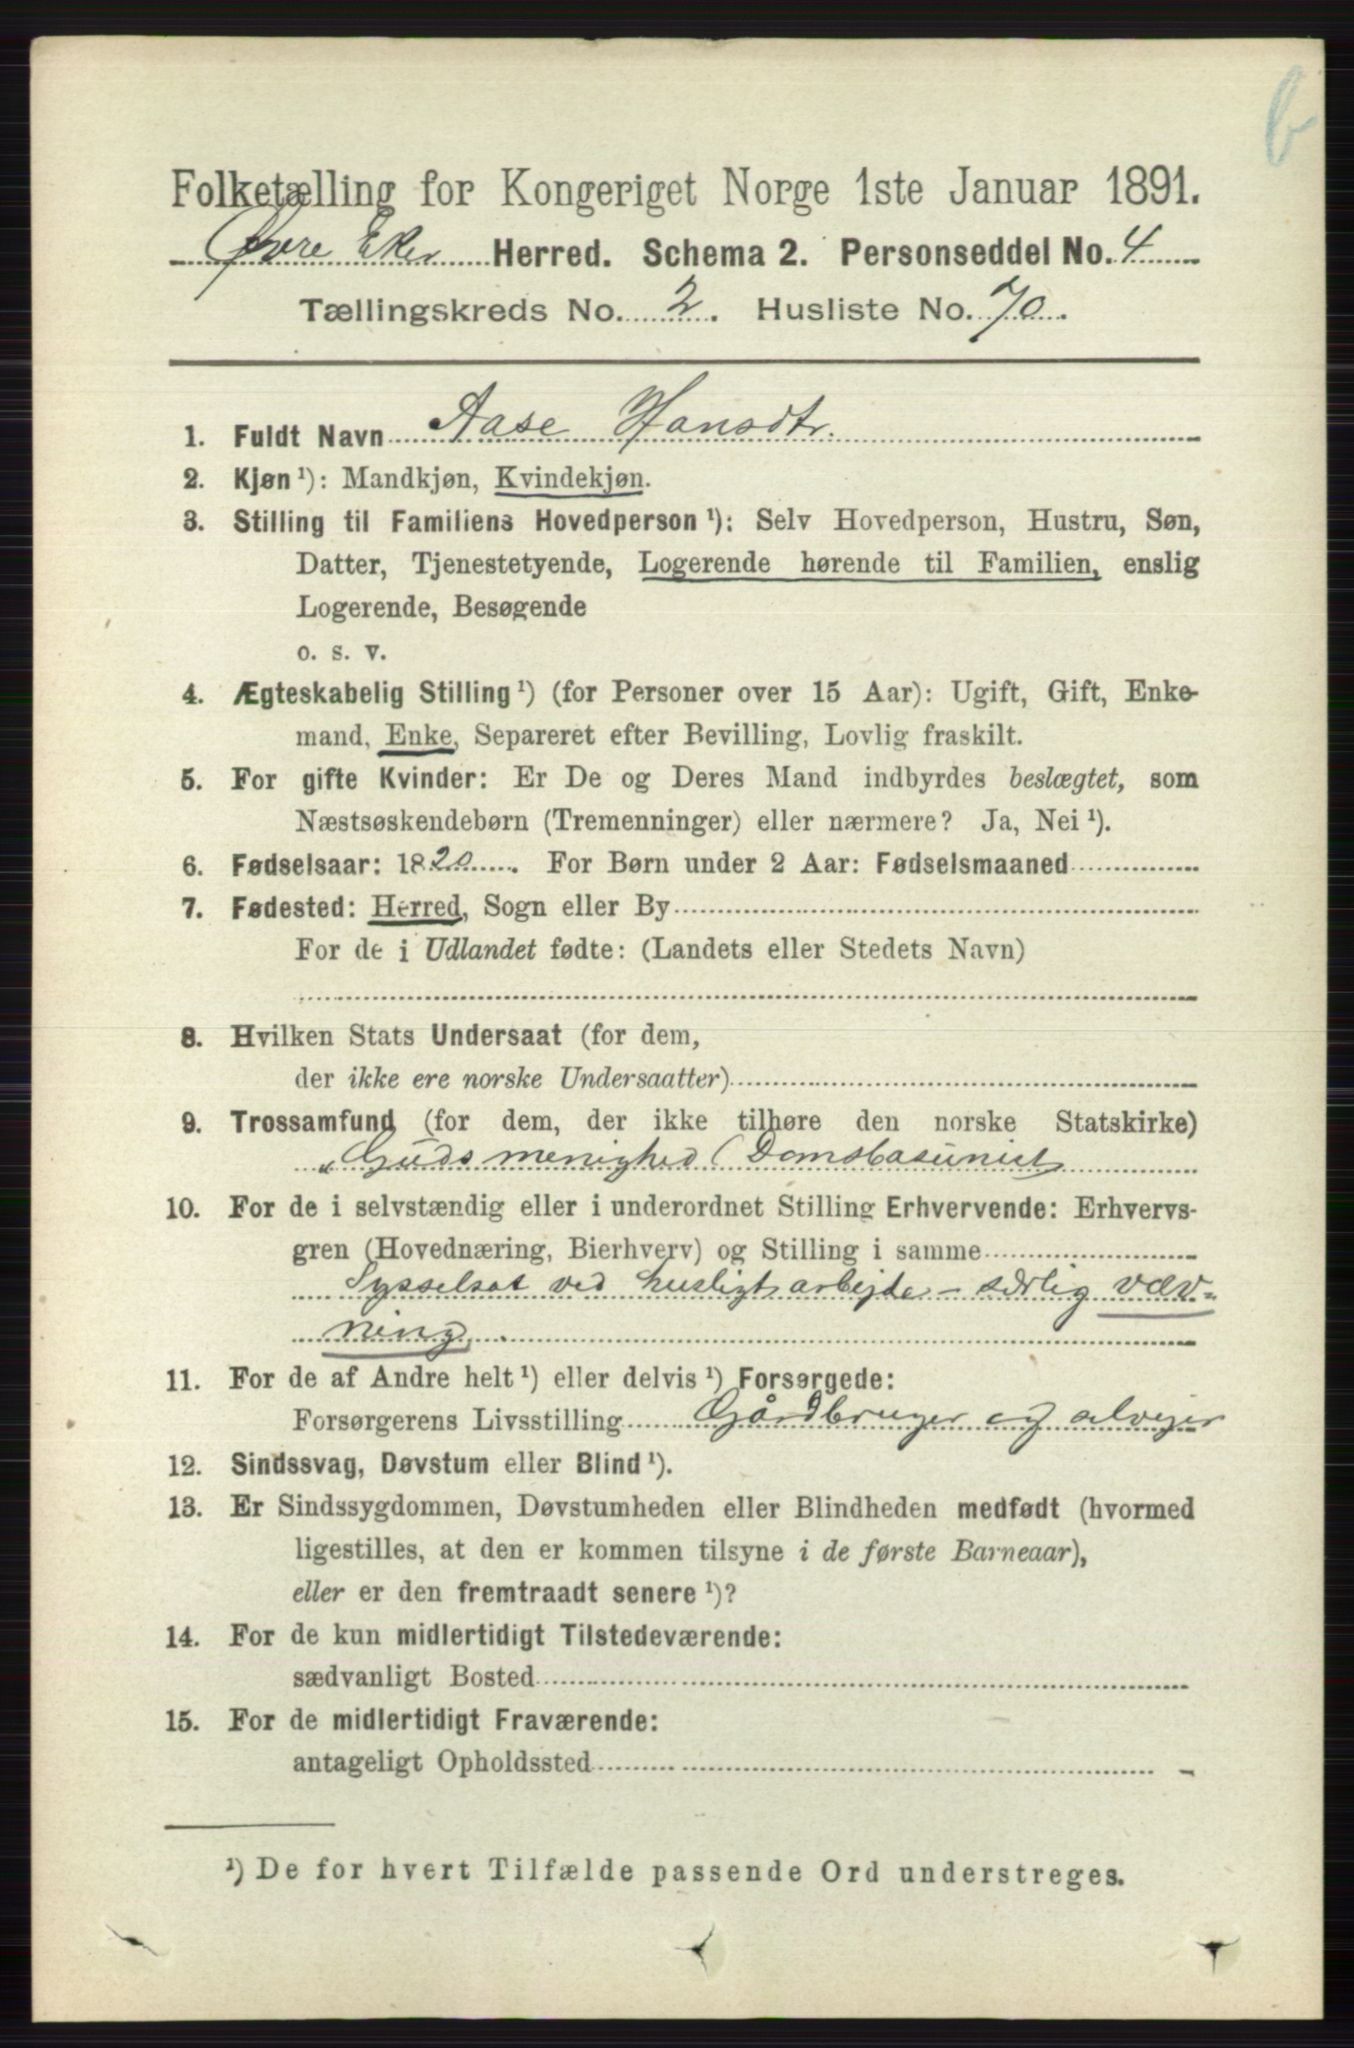 b
Folketælling for Kongeriget Norge 1ste Januar 1891.
Øvre Eker Herred. Schema 2. Personseddel No. 4
Tællingskreds No. 2. Husliste No. 70.
1. Fuldt Navn Aase Hansdtr.
2. Kjøn ¹): Mandkjøn, Kvindekjøn.
3. Stilling til Familiens Hovedperson ¹): Selv Hovedperson, Hustru, Søn,
Datter, Tjenestetyende, Logerende hørende til Familien, enslig
Logerende, Besøgende
o. s. v.
4. Ægteskabelig Stilling ¹) (for Personer over 15 Aar): Ugift, Gift, Enke-
mand, Enke, Separeret efter Bevilling, Lovlig fraskilt.
5. For gifte Kvinder: Er De og Deres Mand indbyrdes beslægtet, som
Næstsøskendebørn (Tremenninger) eller nærmere? Ja, Nei ¹).
6. Fødselsaar: 1820. For Børn under 2 Aar: Fødselsmaaned
7. Fødested: Herred, Sogn eller By
For de i Udlandet fødte: (Landets eller Stedets Navn)
8. Hvilken Stats Undersaat (for dem,
der ikke ere norske Undersaatter)
9. Trossamfund (for dem, der ikke tilhøre den norske Statskirke)
"Guds menighed (Domsbasunist
10. For de i selvstændig eller i underordnet Stilling Erhvervende: Erhvervs-
gren (Hovednæring, Bierhverv) og Stilling i samme
Sysselsat ved husligt arbejde – særlig væv-
ning.
11. For de af Andre helt ¹) eller delvis ¹) Forsørgede:
Forsørgerens Livsstilling Gårdbruger og selvejer
12. Sindssvag, Døvstum eller Blind ¹).
13. Er Sindssygdommen, Døvstumheden eller Blindheden medfødt (hvormed
ligestilles, at den er kommen tilsyne i de første Barneaar),
eller er den fremtraadt senere ¹)?
14. For de kun midlertidigt Tilstedeværende:
sædvanligt Bosted
15. For de midlertidigt Fraværende:
antageligt Opholdssted
¹) De for hvert Tilfælde passende Ord understreges.